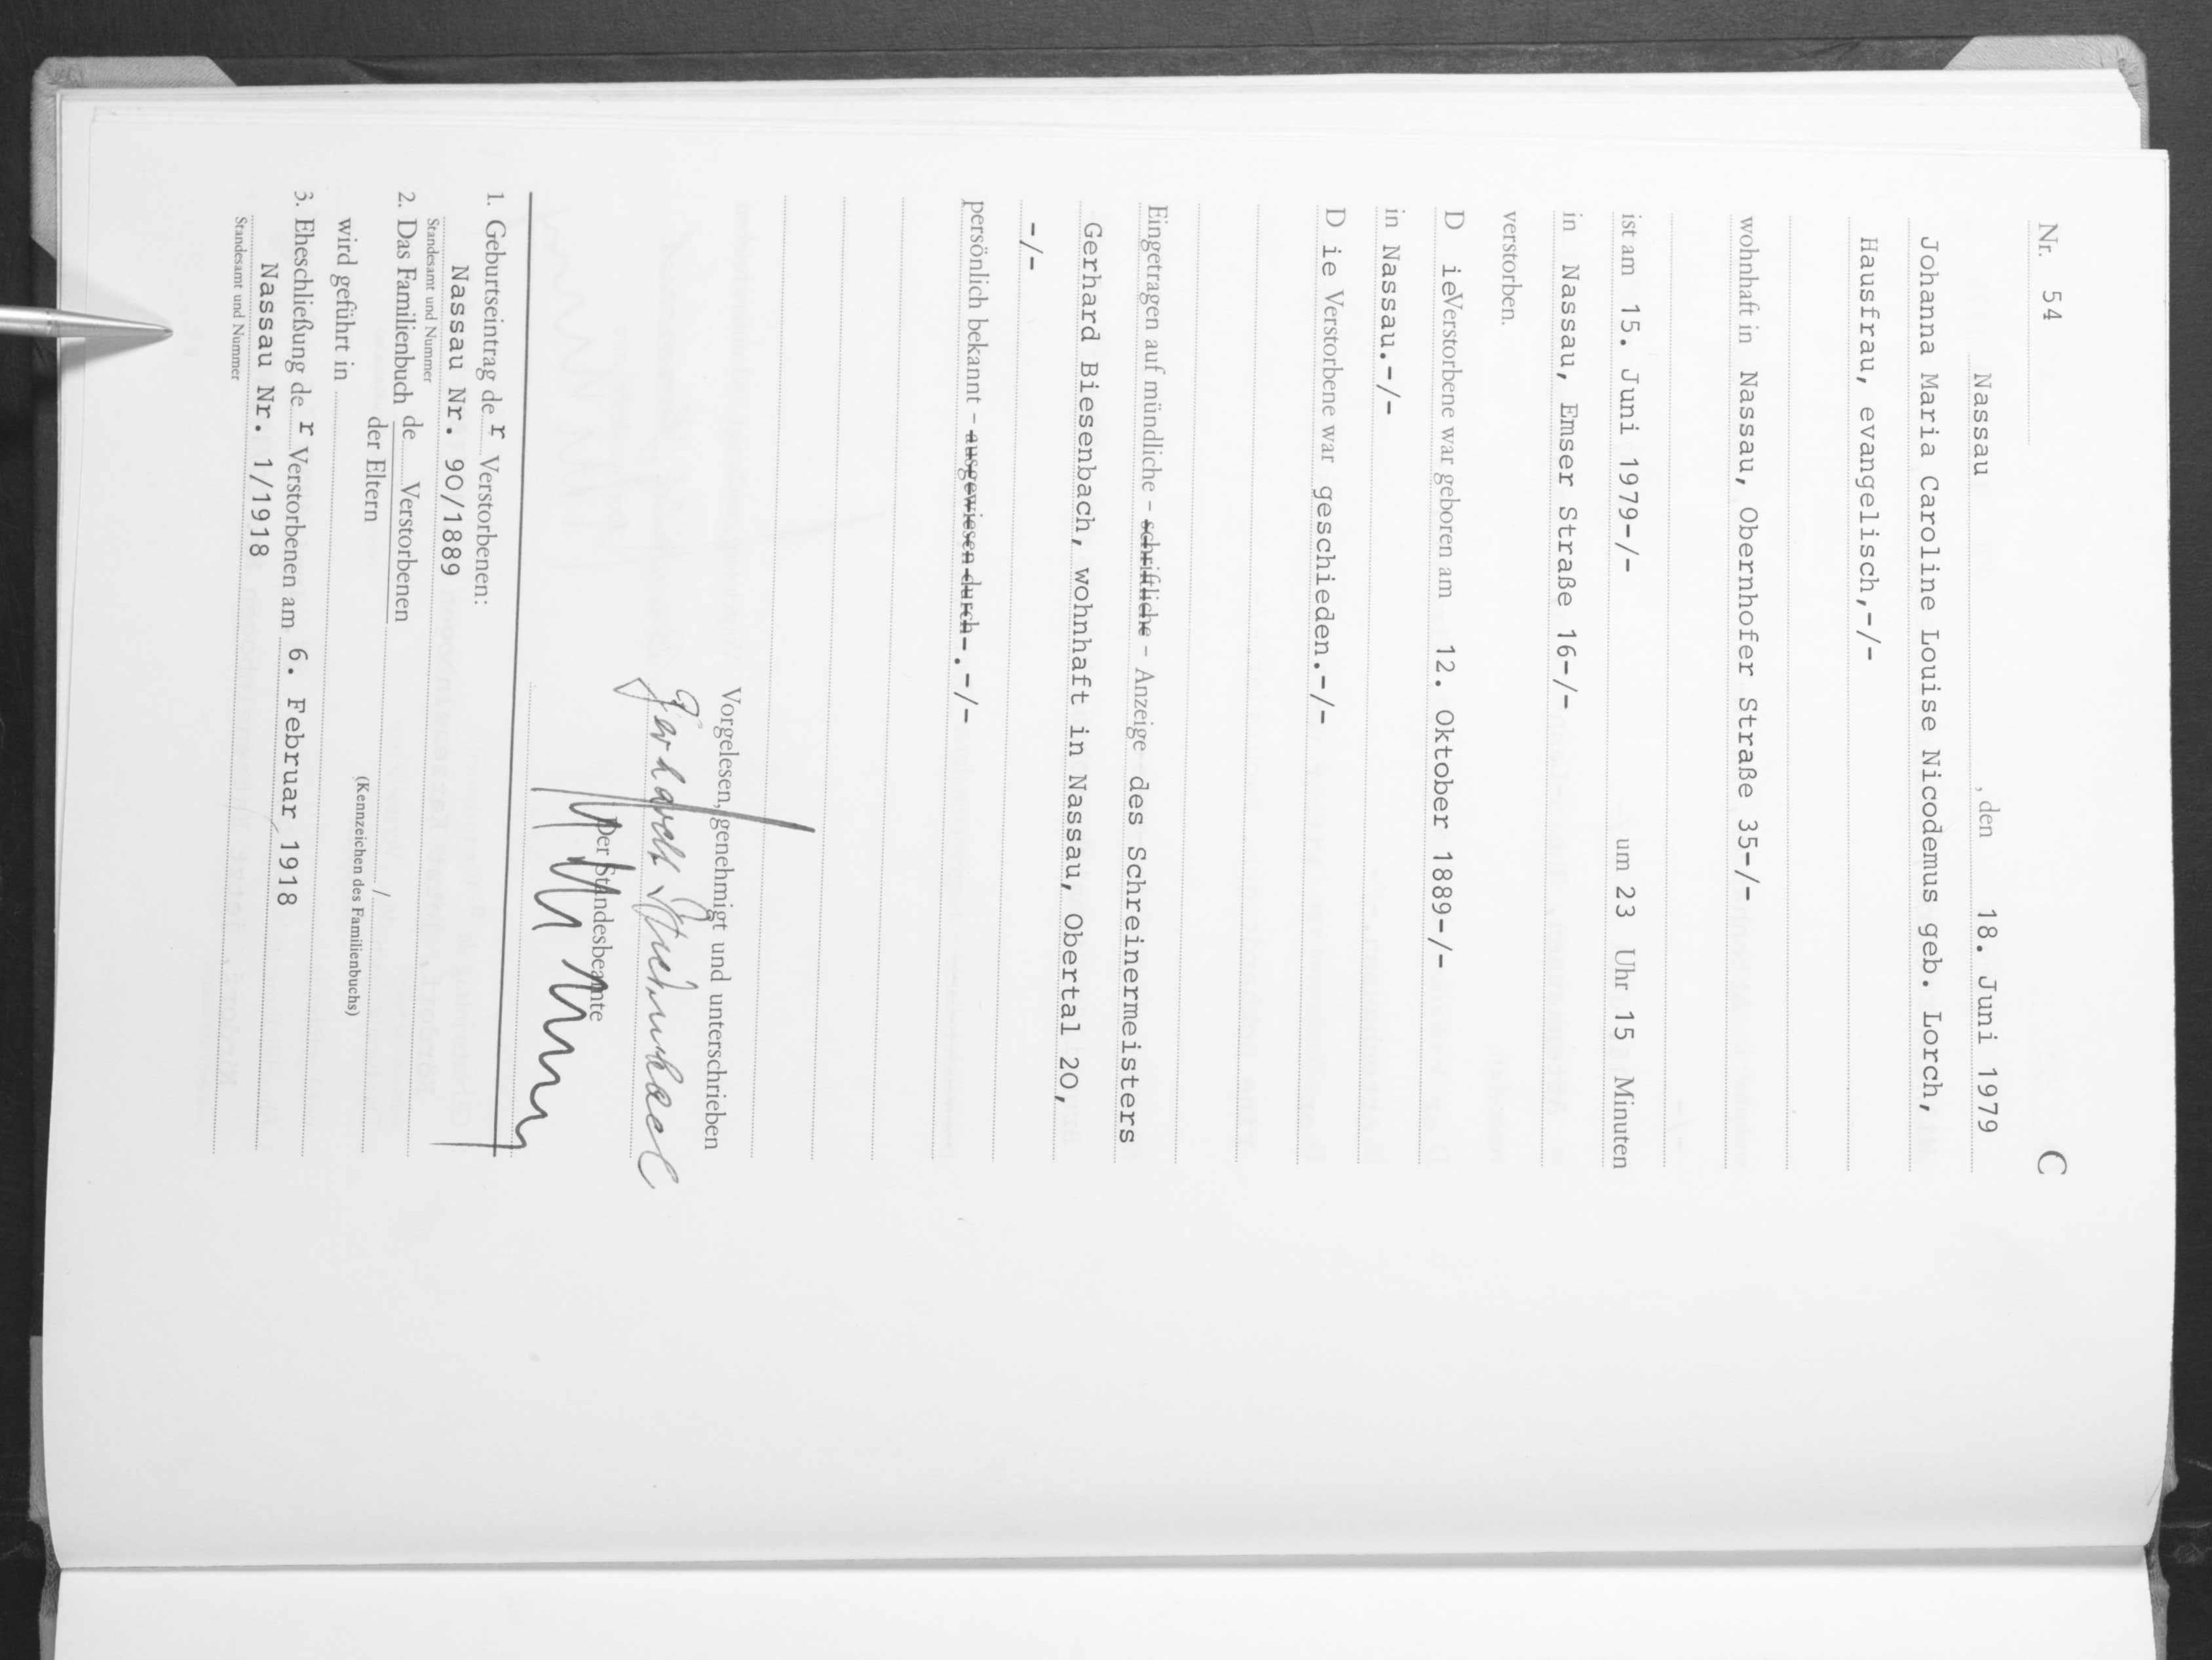 Nr. 54 C
Nassau , den 18. Juni 1979
Johanna Maria Caroline Louise Nicodemus geb. Lorch,
Hausfrau, evangelisch,-/-
wohnhaft in Nassau, Obernhofer Straße 35-/-
ist am 15. Juni 1979-/- um 23 Uhr 15 Minuten
in Nassau, Emser Straße 16-/-
verstorben.
D ie Verstorbene war geboren am 12. Oktober 1889-/-
in Nassau.-/-
D ie Verstorbene war geschieden.-/-
Eingetragen auf mündliche - schriftliche - Anzeige des Schreinermeisters
Gerhard Biesenbach, wohnhaft in Nassau, Obertal 20,
-/-
persönlich bekannt - ausgewiesen durch-.-/-
Vorgelesen, genehmigt und unterschrieben
Gerhard
Der Standesbeamte
1. Geburtseintrag de r Verstorbenen:
Nassau Nr. 90/1889
Standesamt und Nummer
2. Das Familienbuch de Verstorbenen
der Eltern
wird geführt in /
(Kennzeichen des Familienbuchs)
3. Eheschließung de r Verstorbenen am 6. Februar 1918
Nassau Nr. 1/1918
Standesamt und Nummer